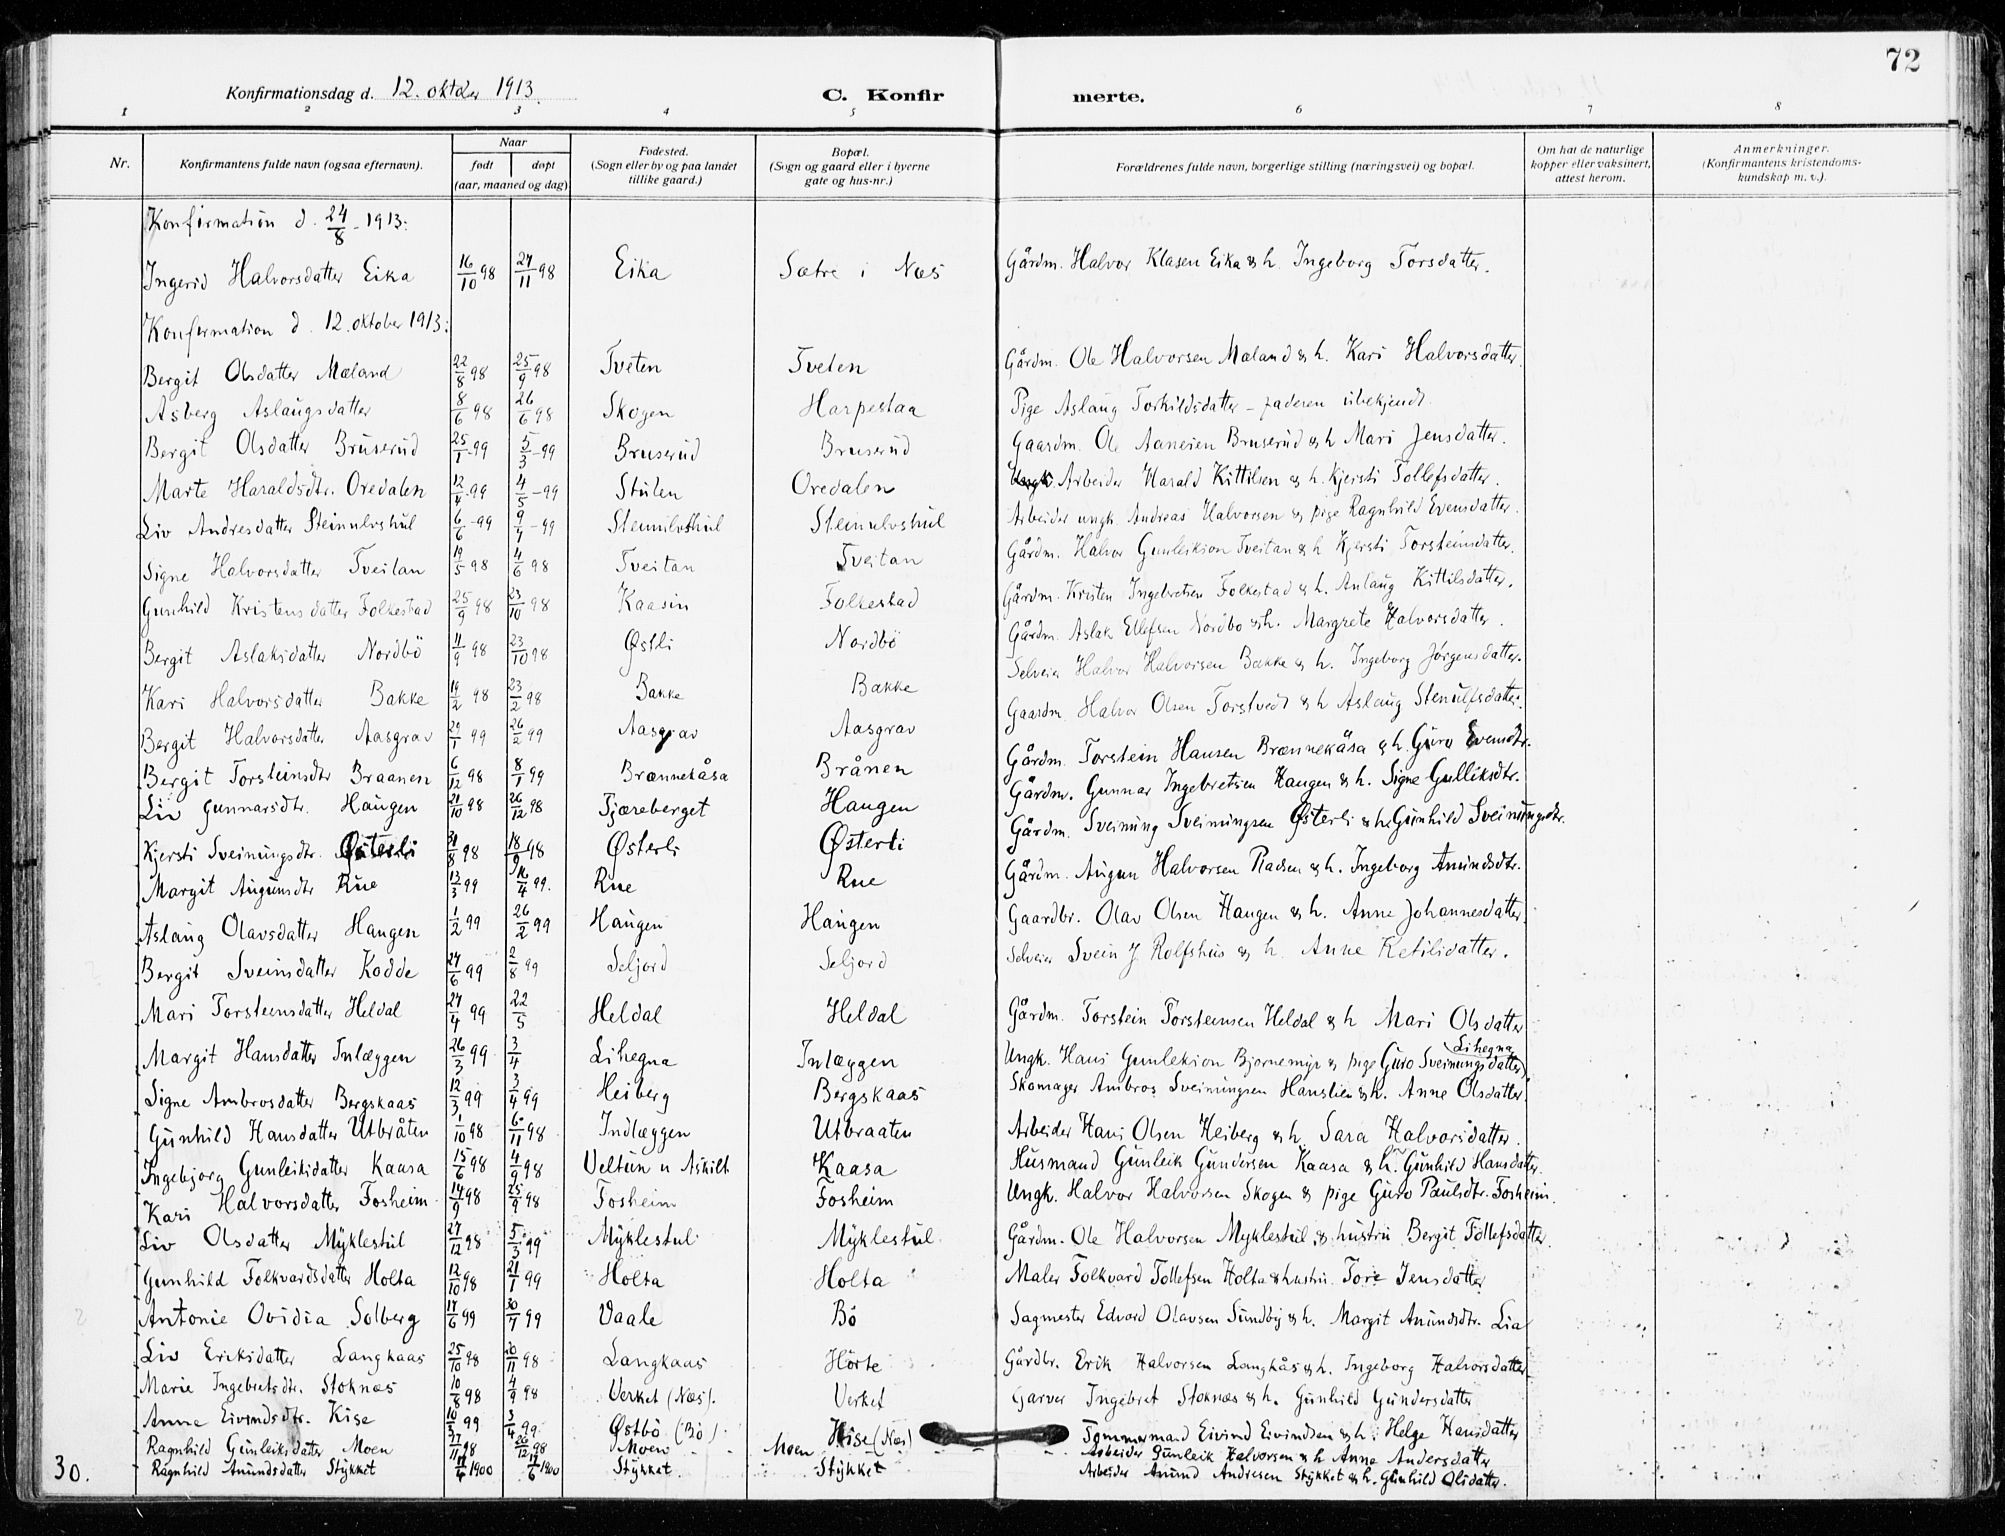 72
Konfirmationsdag d. 12. oktober 1913.
C. Konfirmerte.
1 2 3 4 5 6 7 8
Nr. Konfirmantens fulde navn (ogsaa efternavn). Naar født døpt (aar, maaned og dag) Fødested. (Sogn eller by og paa landet tillike gaard.) Bopæl. (Sogn og gaard eller i byerne gate og hus-nr.) Forældrenes fulde navn, borgerlige stilling (næringsvei) og bopæl. Om hat de naturlige kopper eller vaksinert, attest herom. Anmerkninger. (Konfirmantens kristendoms-kundskap m. v.).
Konfirmation d. 24/8 - 1913:
Ingerid Halvorsdatter Eika 16/10 98 27/11 98 Eika Sætre i Næs Gårdm. Halvor Klasen Eika & h. Ingeborg Torsdatter.
Konfirmation d. 12. oktober 1913:
Bergit Olsdatter Mæland 22/8 98 25/9 98 Tveten Tveten Gårdm. Ole Halvorsen Mæland & h. Kari Halvorsdatter.
Asberg Aslaugsdatter 8/6 98 26/6 98 Skogen Harpestaa Pige Aslaug Torkildsdatter - faderen ubekjendt.
Bergit Olsdatter Bruserud 25/1 99 5/3 - 99 Bruserud Bruserud Gaardm. Ole Aanesen Bruserud & h Mari Jensdatter.
Marte Haraldsdtr. Oredalen 12/4 99 4/5 - 99 Stulen Oredalen Arbeider Harald Kittilsen & h. Kjersti Tollefsdatter.
Liv Andresdatter Steinulvshul 6/6 - 99 9/7 - 99 Steinulvshul Steinulvshul Arbeider ungk. Andreas Halvorsen & pige Ragnhild Evensdatter.
Signe Halvorsdatter Tveitan 19/5 98 4/6 98 Tveitan Tveitan Gårdm. Halvor Gunleiksen Tveitan & h Kjersti Torsteinsdatter.
Gunhild Kristensdatter Folkestad 25/9 98 23/10 98 Kaasin Folkestad Gårdm. Kristen Ingebretsen Folkestad & h. Aslaug Kittilsdatter.
Bergit Aslaksdatter Nordbö 11/9 98 23/10 98 Østli Nordbö Gårdm. Aslak Ellefsen Nordbo & h. Margrete Halvorsdatter.
Kari Halvorsdatter Bakke 19/2 98 23/2 98 Bakke Bakke Selveier Halvor Halvorsen Bakke & h. Ingeborg Jörgensdatter.
Bergit Halvorsdatter Aasgrav 29/1 99 26/2 99 Aasgrav Aasgrav Gaardm. Halvor Olsen Torstvedt & h Aslaug Stenulfsdatter.
Bergit Torsteinsdtr Braanen 6/12 98 8/1 99 Brænnekåsa Brånen Gårdm. Torstein Hansen Brænnekåsa & h. Guro Evensdtr.
Liv Gunnarsdtr. Haugen 21/10 98 26/12 98 Tjæreberget Haugen Gårdm. Gunnar Ingebretsen Haugen & h. Signe Gulliksdtr.
Kjersti Sveinungsdtr. Østerli 31/8 98 18/9 98 Østerli Østerli Gårdm. Sveinung Sveinungsen Østerli & h. Gunhild Sveinungsdtr.
Margit Augunsdtr Rue 13/3 99 16/4 99. Rue Rue Gårdm. Augun Halvorsen & h. Ingeborg Amundsdtr.
Aslaug Olavsdatter Haugen 1/2 99 26/2 99 Haugen Haugen Gaardbr. Olav Olsen Haugen & h. Anne Johannesdatter
Bergit Sveinsdatter Kodde 24/6 99 2/8 99 Seljord Seljord Selveier Svein J. Rolfshus & h. Anne Ketilsdatter.
Mari Torsteinsdatter Heldal 27/4 99 22/5 Heldal Heldal Gårdm. Torstein Torsteinsen Heldal & h Mari Olsdatter
Margit Hansdatter Inlæggen 26/3 99 3/4 Lihegna Inlæggen Ungk. Hans Gunleksen Bjørnemyr & pige Guro Sveinungsdatter Lihegna
Signe Ambrosdatter Bergskaas 12/3 99 3/4 99 Heiberg Bergskaas Skomager Ambros Sveinungsen Hauslien & h. Anne Olsdatter
Gunhild Hansdatter Utbråten 1/10 98 6/11 98 Indlæggen Utbraaten Arbeider Hans Olsen Heiberg & h. Sara Halvorsdatter.
Ingebjorg Gunleiksdatter Kaasa 15/6 98 4/9 98 Veltun u Askilt Kaasa Husmand Gunleik Gundersen Kaasa & h. Gunhild Hansdatter.
Kari Halvorsdatter Fosheim 14/9 98 25/9 98 Fosheim Fosheim Ungk. Halvor Halvorsen Skogen & pige Guro Paulsdtr. Fosheim.
Liv Olsdatter Myklestul 27/12 98 5/3 99 Myklestul Myklestul Gårdm. Ole Halvorsen Myklestul & hustru Bergit Tollefsdatter.
Gunhild Folkvardsdatter Holta 12/10 98 21/1 99 Holta Holta Maler Folkvard Tollefsen Holta & hustru Tore Jensdatter
Antonie Ovidia Solberg 17/6 99 30/7 99 Vaale Bö Sagmester Edvard Olavsen Sundby & h. Margit Amundsdtr. Lia
Liv Eriksdatter Langkaas 25/10 98 20/11 98 Langkaas Hörte Gårdbr. Erik Halvorsen Langkås & h. Ingeborg Halvorsdatter
Marie Ingebretsdtr. Stoknæs 10/8 98 4/9 98 Verket (Næs). Verket Garver Ingebret Stoknæs & h. Gunhild Gundersdatter
Anna Eivindsdtr. Kise 10/3 99 3/4 99. Østbö (Bö) Kise (Næs) Tømmermand Eivind Eivindsen & h. Helge Hansdatter
Ragnhild Gunleiksdatter Moen 27/11 98 26/12 98 Moen Moen Arbeider Gunleik Halvorsen & h Anne Andersdatter
30. Ragnhild Amundsdatter Stykket 17/4 1900 17/6 1900 Stykket. Stykket Arbeider Amund Andresen Stykket & h. Gunhild Olsdatter.